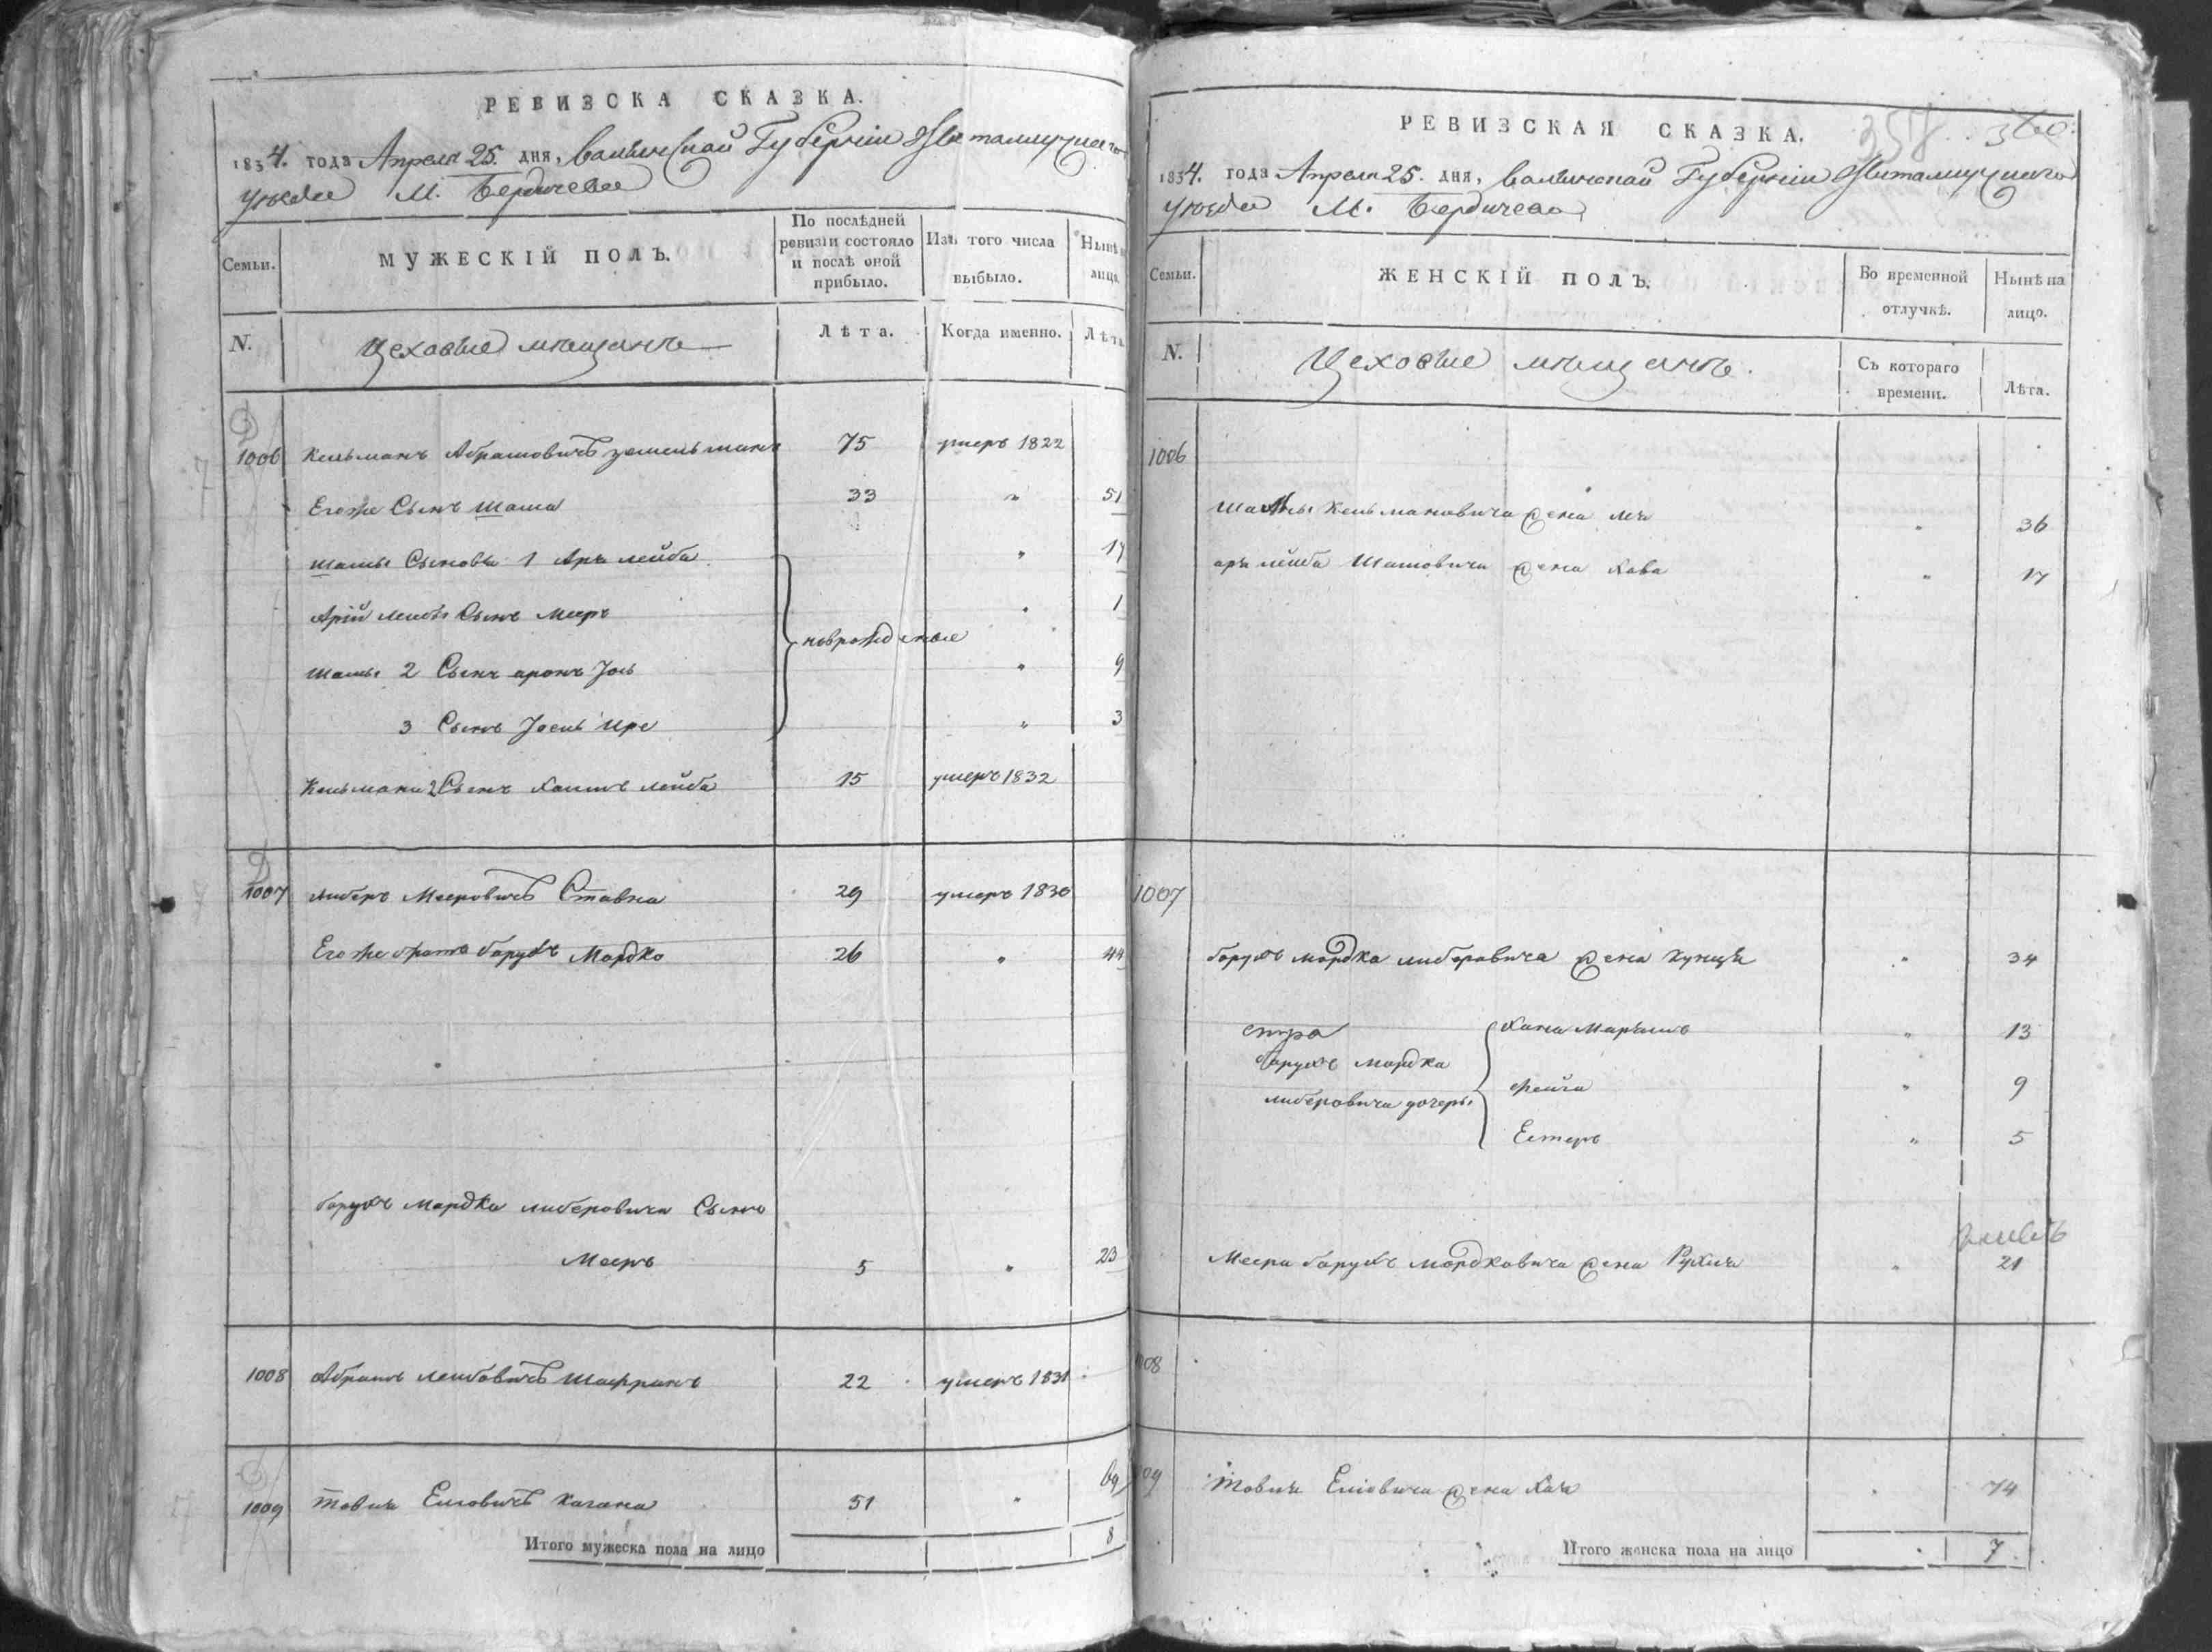 РЕВИЗСКА СКАЗКА.
1834. года Апреля 25. дня, Волынской Губернии Житомирскаго
уезда М. Бердичева
Семьи.
МУЖЕСКІЙ ПОЛЪ.
По послѣдней ревизіи состояло и послѣ оной прибыло.
Изъ того числа выбыло.
Нынѣ на лицо.
N.
Цеховые мещане
Лѣта.
Когда именно.
Лѣта
1006 Кельманъ Абрамовичъ 75 умеръ 1822
Егоже Сынъ Шама 33 " 51
Шамы Сыновья 1 Арь лейба " 17
Арій лейбы Сынъ Мееръ " 1
новрожденые
Шамы 2 Сынъ аронъ Іось " 9
3 Сынъ Іосиь " 3
Кельмана 2 Сынъ Хаимъ лейба 15 умеръ 1832
1007 либеръ Мееровичъ Ставна 29 умеръ 1830
Егоже братъ барухъ Мордко 26 " 44
барухъ мордка либеровича Сынъ
Мееръ 5 " 23
1008 Абрамъ лейбовичъ Шафранъ 22 умеръ 1831
1009 Товия Елиовичъ Кагана 51 " 69
Итого мужеска пола на лицо 8
РЕВИЗСКАЯ СКАЗКА. 358 360
1834. года Апреля 25. дня, Волынской Губернии Житомирскаго
уезда М. Бердичева
Семьи.
ЖЕНСКІЙ ПОЛЪ.
Во временной отлучкѣ.
Нынѣ на лицо.
N.
Цеховые мещане.
Съ котораго времени.
Лѣта.
1006
Шамы Кельмановича жена " 36
арь лейба Шамовича жена Хава " 17
1007
барухъ мордка либеровича жена Кунця " 34
Хана Марьямъ " 13
барухъ мордка
либеровича дочеры
фейга " 9
Естеръ " 5
Меера барухъ мордковича жена Рухля " 21
1008
1009 Товия Елиовича жена Хая " 74
Итого женска пола на лицо 7